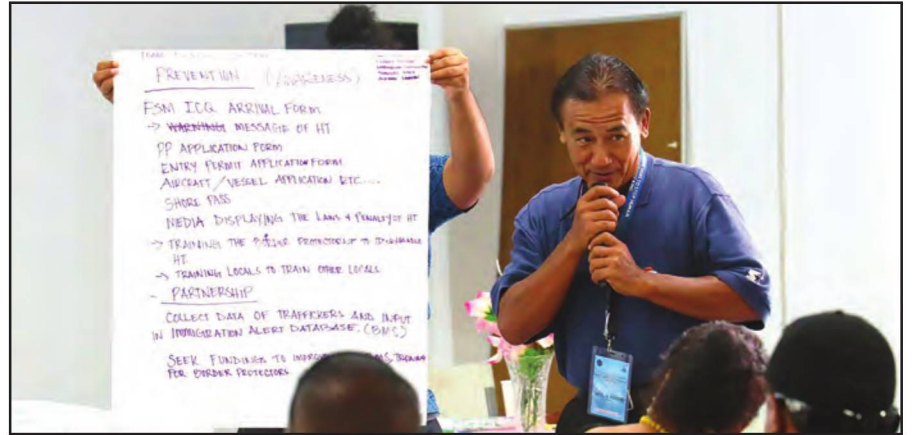 PREVENTION (AWARENESS)
FSM ICQ ARRIVAL FORM
→ WARNING MESSAGE OF HT
PP APPLICATION FORM
ENTRY PERMIT APPLICATION FORM
AIRCRAFT / VESSEL APPLICATION ETC....
SHORE PASS
MEDIA DISPLAYING THE LAWS & PENALTY OF HT
→ TRAINING THE BORDER PROTECTORS TO
HT
→ TRAINING LOCALS TO TRAIN OTHER LOCALS
- PARTNERSHIP
COLLECT DATA OF TRAFFICKERS AND INPUT
IN IMMIGRATION ALERT DATABASE. (BMS)
SEEK FUNDINGS TO TRAINING
FOR BORDER PROTECTORS